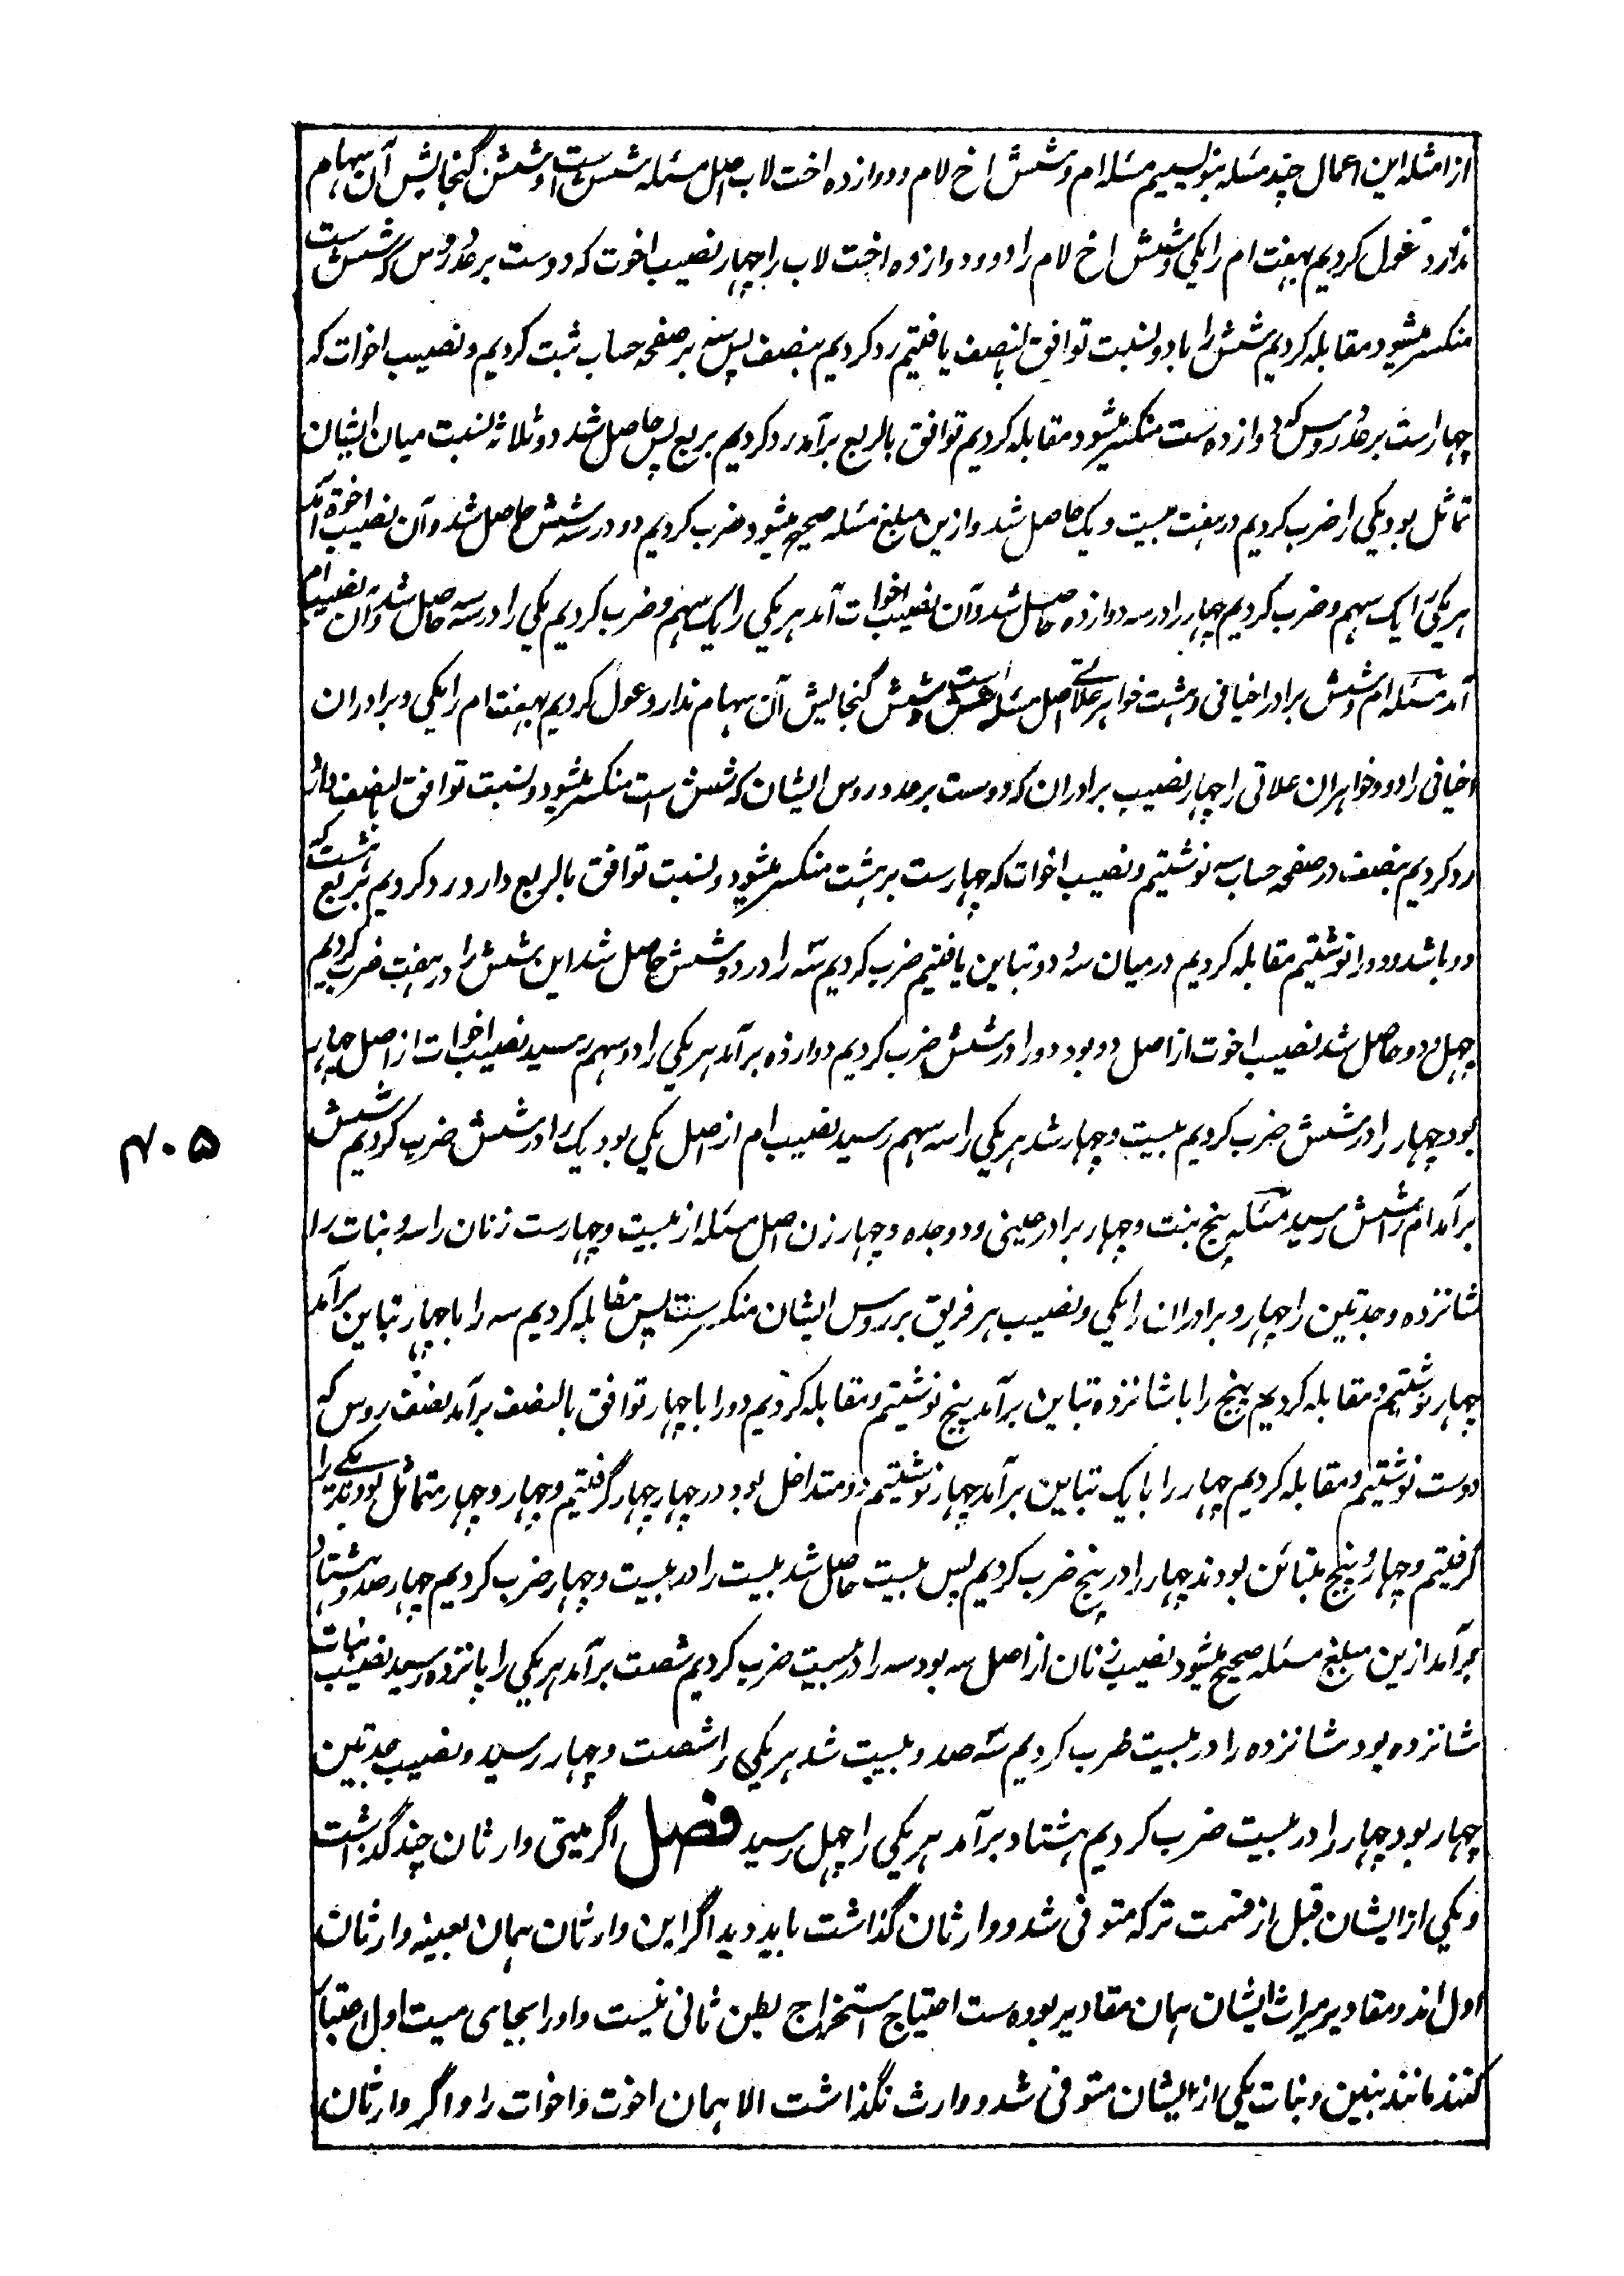 از امثله این اعمال چند مسئله بنویسیم مسئله ام و شش اخ لام و دوازده اخت لاب اصل مسئله شش ست و شش گنجایش آن سهام
ندارد عول کردیم بهفت ام را یکی و شش اخ لام را دو و دوازده اخت لاب را چهار نصیب اخوت که دوست بر عدد روس که شش ست
منکسر میشود مقابله کردیم شش را با دو نسبت توافق بالنصف یافتیم رد کردیم بنصف پس سه بر صفحه حساب ثبت کردیم و نصیب اخوات که
چهارست بر عدد روس که دوازده ست منکسر میشود مقابله کردیم توافق بالربع برآمد رد کردیم بربع پس حاصل شد دو ثلاثه نسبت میان ایشان
تماثل بود یکی را ضرب کردیم در هفت بیست و یک حاصل شد و ازین مبلغ مسئله صحیح میشود ضرب کردیم دو در سه شش حاصل شد و آن نصیب اخوة آمد
هر یکی را یک سهم و ضرب کردیم چهار را در سه دوازده حاصل شد و آن نصیب اخوات آمد هر یکی را یک سهم و ضرب کردیم یکی را در سه سه حاصل شد و آن نصیب ام
آمد مسئله ام و شش برادر اخیافی و هشت خواهر علاتی اصل مسئله شش است و شش گنجایش آن سهام ندارد عول کردیم بهفت ام را یکی و برادران
اخیافی را دو و خواهران علاتی را چهار نصیب برادران که دوست بر عدد روس ایشان که شش است منکسر میشود و نسبت توافق بالنصف دارد
رد کردیم بنصف در صفحه حساب سه نوشتیم و نصیب اخوات که چهارست بر هشت منکسر میشود و نسبت توافق بالربع دارد رد کردیم بربع هشت که
دو باشد و دو را نوشتیم مقابله کردیم درمیان سه و دو تباین یافتیم ضرب کردیم سه را در دو شش حاصل شد این شش را در هفت ضرب کردیم
چهل و دو حاصل شد نصیب اخوت از اصل دو بود دو را در شش ضرب کردیم دوازده برآمد هر یکی را دو سهم رسید نصیب اخوات از اصل چهار
بود چهار را در شش ضرب کردیم بیست و چهار شد هر یکی را سه سهم رسید نصیب ام از اصل یکی بود یک را در شش ضرب کردیم شش
برآمد ام را شش رسید مسئله پنج بنت و چهار برادر عینی و دو جده و چهار زن اصل مسئله از بیست و چهارست زنان را سه و بنات را
شانزده و جدتین را چهار و برادران را یکی و نصیب هر فریق بر روس ایشان منکسرست پس مقابله کردیم سه را با چهار تباین برآمد
چهار نوشتیم و مقابله کردیم پنج را با شانزده تباین برآمد پنج نوشتیم و مقابله کردیم دو را با چهار توافق بالنصف برآمد نصف روس که
دوست نوشتیم و مقابله کردیم چهار را با یک تباین برآمد چهار نوشتیم دو متداخل بود در چهار چهار گرفتیم و چهار و چهار متماثل بودند یکی را
گرفتیم و چهار و پنج متبائن بودند چهار را در پنج ضرب کردیم پس بیست حاصل شد بیست را در بیست و چهار ضرب کردیم چهار صد و هشتاد
برآمد ازین مبلغ مسئله صحیح میشود نصیب زنان از اصل سه بود سه را در بیست ضرب کردیم شصت برآمد هر یکی را پانزده رسید نصیب بنات
شانزده بود شانزده را در بیست ضرب کردیم سه صد و بیست شد هر یکی را شصت و چهار رسید و نصیب جدتین
چهار بود چهار را در بیست ضرب کردیم هشتاد برآمد هر یکی را چهل رسید فصل اگر میتی وارثان چند گذاشت
و یکی از ایشان قبل از قسمت ترکه متوفی شد و وارثان گذاشت باید دید اگر این وارثان همان بعینه وارثان
اول اند و مقادیر میراث ایشان همان مقادیر بوده ست احتیاج استخراج بطن ثانی نیست و او را بجای میت اول اعتبار
کنند مانند بنین و بنات یکی از ایشان متوفی شد و وارث نگذاشت الا همان اخوت و اخوات را و اگر وارثان
۴۰۵